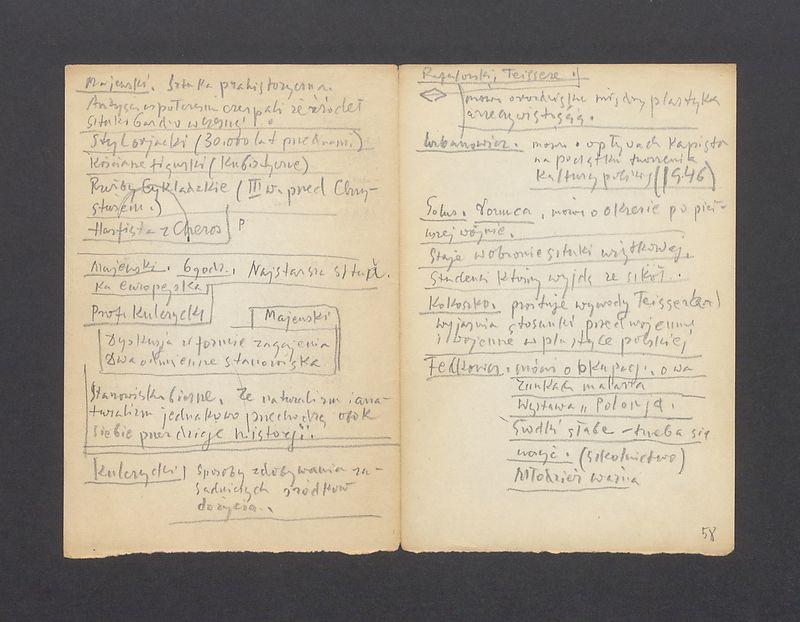 Majewski. Sztuka prahistoryczna.
czerpali ze źródeł
sztuki bardzo wczesnej
Styl oryjacki (30.000 lat przed nami.)
Kościane figurki (Kubistyczne)
Rzeźby Cykladzkie (III w. przed Chry-
stusem.)
Harfista z Cheros P
Majewski. 6 godz., Najstarsza sztu-
ka europejska
Prof. Kulczycki
Majewski
Dyskusja w formie zagajenia
Dwa odmienne stanowiska
Stanowisko biorę, że naturalizm i ana-
turalizm jednakowo przechodzą obok
siebie przez dzieje historji.
Kulczycki sposoby zdobywania za-
sadniczych środków
do życia.
Rafałowski, Teissere
mówi o między plastyką
a rzeczywistością.
Urbanowicz. mówi o wpływach Kapistów
na początku tworzenia
Kultury polskiej (1946)
mówi o okresie po pier-
wszej wojnie.
Staje w obronie sztuki użytkowej.
Studenci którzy wyjdą ze szkół.
Kokoszko. prostuje wywody Teisser(a)
Wyjaśnia stosunki przedwojenne
i wojenne w plastyce polskiej
Fedkowicz. mówi o okupacji. o wa-
runkach malarza
Wystawa „Polonja.
Środki słabe – trzeba się
uczyć. (szkolnictwo)
Młodzież ważna
58